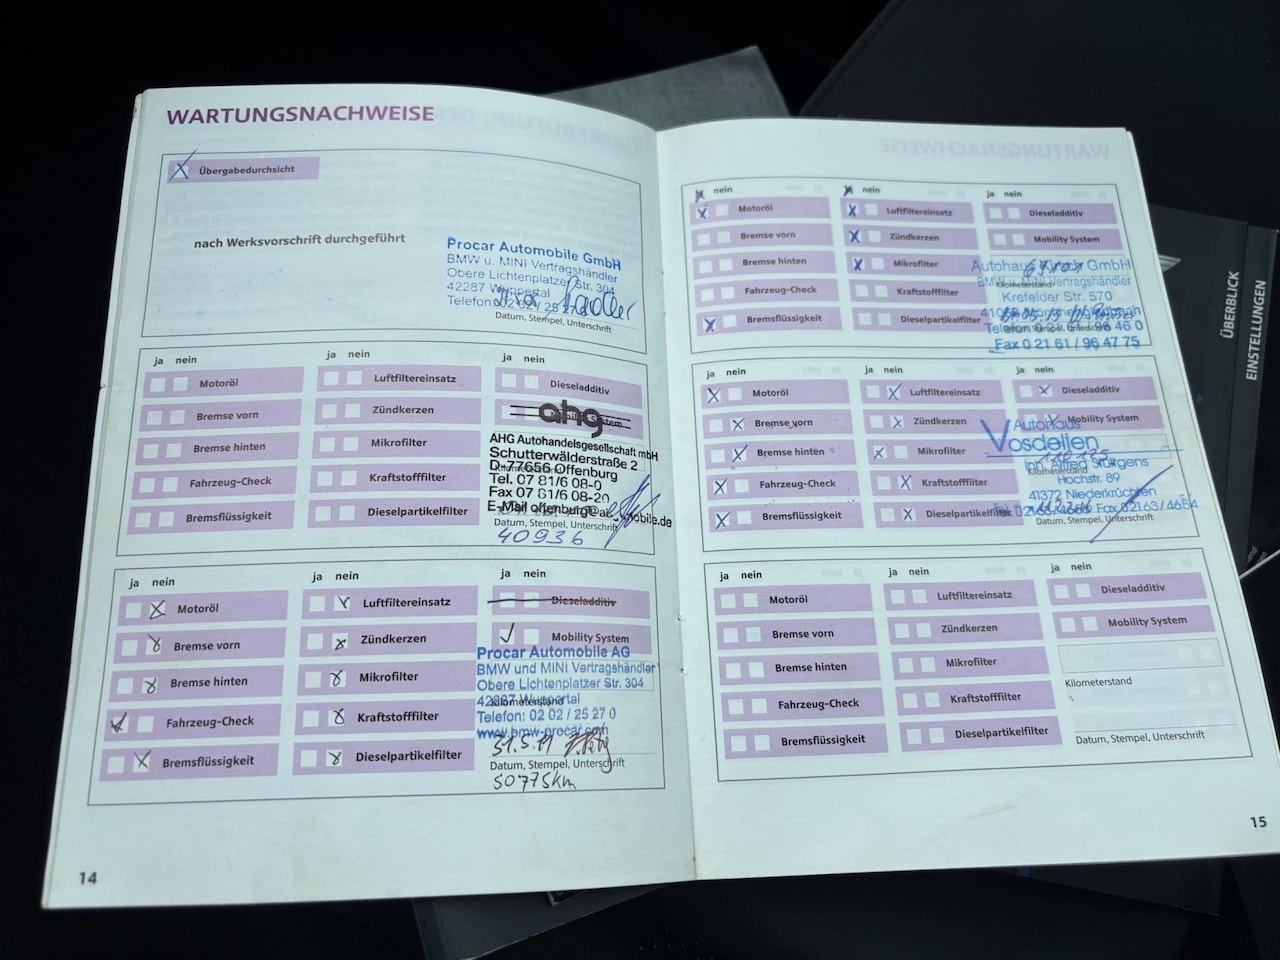 WARTUNGSNACHWEISE
Übergabedurchsicht
nach Werksvorschrift durchgeführt
Procar Automobile GmbH
BMW u. MINI Vertragshändler
Obere Lichtenplatzer Str. 304
42287 Wuppertal
Telefon: 02 02 / 25 27 0
Datum, Stempel, Unterschrift
ja nein
Motoröl
Bremse vorn
Bremse hinten
Fahrzeug-Check
Bremsflüssigkeit
ja nein
Luftfiltereinsatz
Zündkerzen
Mikrofilter
Kraftstofffilter
Dieselpartikelfilter
ja nein
Dieseladditiv
Mobility System
ahg
AHG Autohandelsgesellschaft mbH
Schutterwälderstraße 2
D-77656 Offenburg
Kilometerstand
Tel. 07 81/6 08-0
Fax 07 81/6 08-20
E-Mail offenburg@ahg-mobile.de
Datum, Stempel, Unterschrift
40936
ja nein
Motoröl
Bremse vorn
Bremse hinten
Fahrzeug-Check
Bremsflüssigkeit
ja nein
Luftfiltereinsatz
Zündkerzen
Mikrofilter
Kraftstofffilter
Dieselpartikelfilter
ja nein
Dieseladditiv
Mobility System
Procar Automobile AG
BMW und MINI Vertragshändler
Obere Lichtenplatzer Str. 304
42287 Wuppertal
Kilometerstand
Telefon: 02 02 / 25 27 0
www.bmw-procar.com
31.5.11
Datum, Stempel, Unterschrift
50775km
14
nein
Motoröl
Bremse vorn
Bremse hinten
Fahrzeug-Check
Bremsflüssigkeit
nein
Luftfiltereinsatz
Zündkerzen
Mikrofilter
Kraftstofffilter
Dieselpartikelfilter
ja nein
Dieseladditiv
Mobility System
Autohaus Kirsch GmbH
BMW u. MINI Vertragshändler
Kilometerstand
Krefelder Str. 570
41066 Mönchengladbach
Telefon 96 46 0
Fax 0 21 61 / 96 47 75
ja nein
Motoröl
Bremse vorn
Bremse hinten
Fahrzeug-Check
Bremsflüssigkeit
ja nein
Luftfiltereinsatz
Zündkerzen
Mikrofilter
Kraftstofffilter
Dieselpartikelfilter
ja nein
Dieseladditiv
Mobility System
Autohaus
Vosdellen
Inh. Alfred Stüttgens
Kilometerstand
Hochstr. 89
41372 Niederkrüchten
Fax 02163/4654
Datum, Stempel, Unterschrift
ja nein
Motoröl
Bremse vorn
Bremse hinten
Fahrzeug-Check
Bremsflüssigkeit
ja nein
Luftfiltereinsatz
Zündkerzen
Mikrofilter
Kraftstofffilter
Dieselpartikelfilter
ja nein
Dieseladditiv
Mobility System
Kilometerstand
Datum, Stempel, Unterschrift
15
ÜBERBLICK
EINSTELLUNGEN